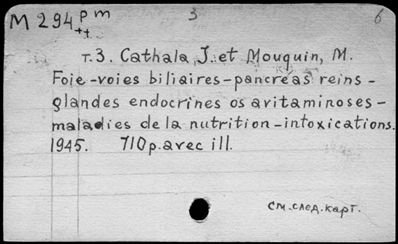 M 294 pm 3 6
++
т.3. Cathala, J. et Mouquin, M.
Foie-voies biliaires-pancréas reins-
glandes endocrines os avitaminoses-
maladies de la nutrition-intoxications.
1945. 710p. avec ill.
см. след. карт.